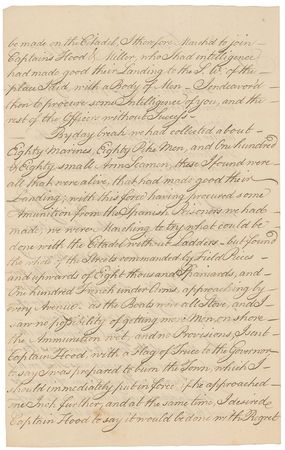 be made on the Citadel, I therefore March'd to join
Captains Hood & Miller, who I had intelligence
had made good their Landing to the S.W. of the
place I did, with a Body of Men - I endeavord
then to procure some Intelligence of you, and the
rest of the Officers without Success -
By day break we had collected about
Eighty Marines, Eighty Pike Men, and One hundred
& Eighty small Arm Seamen, these I found were
all that were alive, that had made good their
Landing; with this force having procured some
Amunition from the Spanish Prisoners we had
made, we were Marching to try what could be
done with the Citadel without Ladders - but found
the whole of the Streets commanded by Field Pieces
and upwards of Eight thousand Spaniards, and
One hundred French under Arms, approaching by
every Avenue. as the Boats were all Stove, and I
saw no possibility of getting more Men on shore -
the Ammunition wet, and no Provisions, I sent
Captain Hood, with a Flag of Truce to the Governor
to say I was prepared to burn the Town, which I
should immediately put in force if he approached
one Inch further, and at the same time, I desired
Captain Hood to say it would be done with Regret